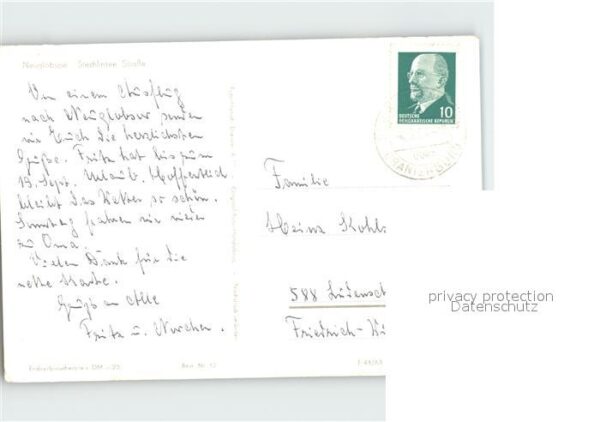 Neuglobsow Stechlinsee Straße
Von einem Ausflug
nach Neuglobsow senden
wir Euch die herzlichsten
Grüße. Fritz hat bis zum
19. Sept. Urlaub. Hoffentlich
bleibt das Wetter so schön.
Sonntag fahren wir wieder
zu Oma.
Vielen Dank für die
nette Karte.
Grüße an Alle
Fritz u.
Bestl. Nr. 12
DEUTSCHE
DEMOKRATISCHE REPUBLIK
10
Familie
Heinz Kohl
588 Lüdensch
Friedrich-
privacy protection
Datenschutz